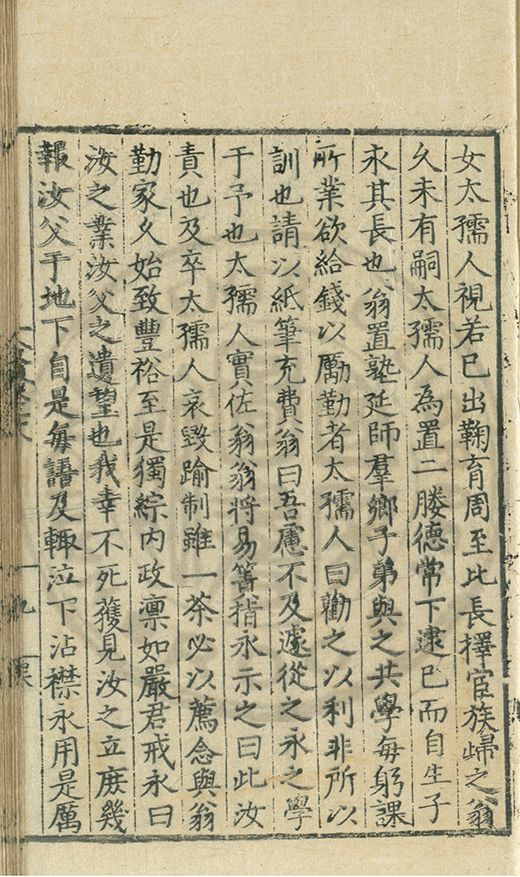 女太孺人視若已出鞠育周至比長擇宦族歸之翁
久未有嗣太孺人為置二媵德常下逮已而自生子
永其長也翁置塾延師羣鄉子弟與之共學每躬課
所業欲給錢以勵勤者太孺人曰勸之以利非所以
訓也請以紙筆充費翁曰吾慮不及遽從之永之學
于予也太孺人實佐翁翁將易簀指永示之曰此汝
責也及卒太孺人哀毀踰制雖一茶必以薦念與翁
勤家久始致豐裕至是獨綜內政凛如嚴君戒永曰
汝之業汝父之遺望也我幸不死獲見汝之立庶幾
報汝父于地下自是每語及輙泣下沾襟永用是厲